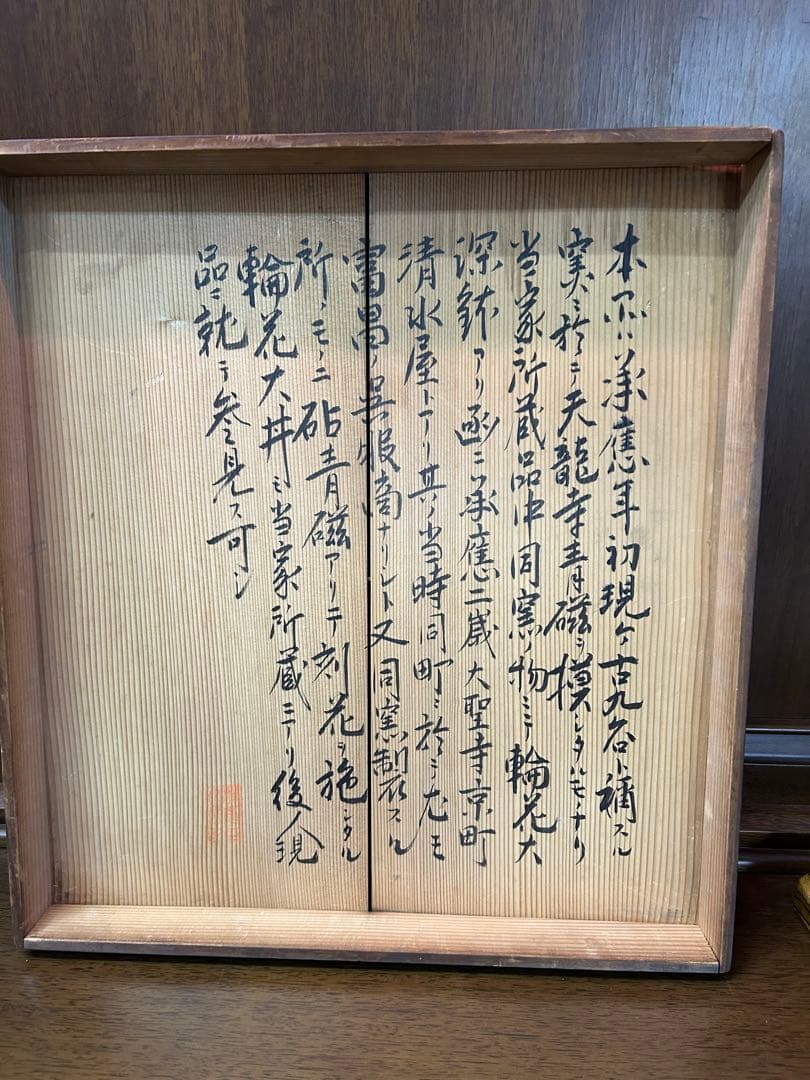 本品ハ承應年初現今古九谷ト稱スル
窯ニ於ニテ天龍寺青磁ヲ模シタルモノナリ
当家所蔵品中同窯ノ物ニテ輪花大
深鉢アリ函ニ承應二歳大聖寺京町
清水屋トアリ其ノ当時同町ニ於テ尤モ
富昌ノ呉服商ナリシト又同窯製スル
所ノモノニ砧青磁アリテ刻花ヲ施シタル
輪花大丼ミ当家所蔵ニアリ後ノ現
品ニ就テ參見ス可シ